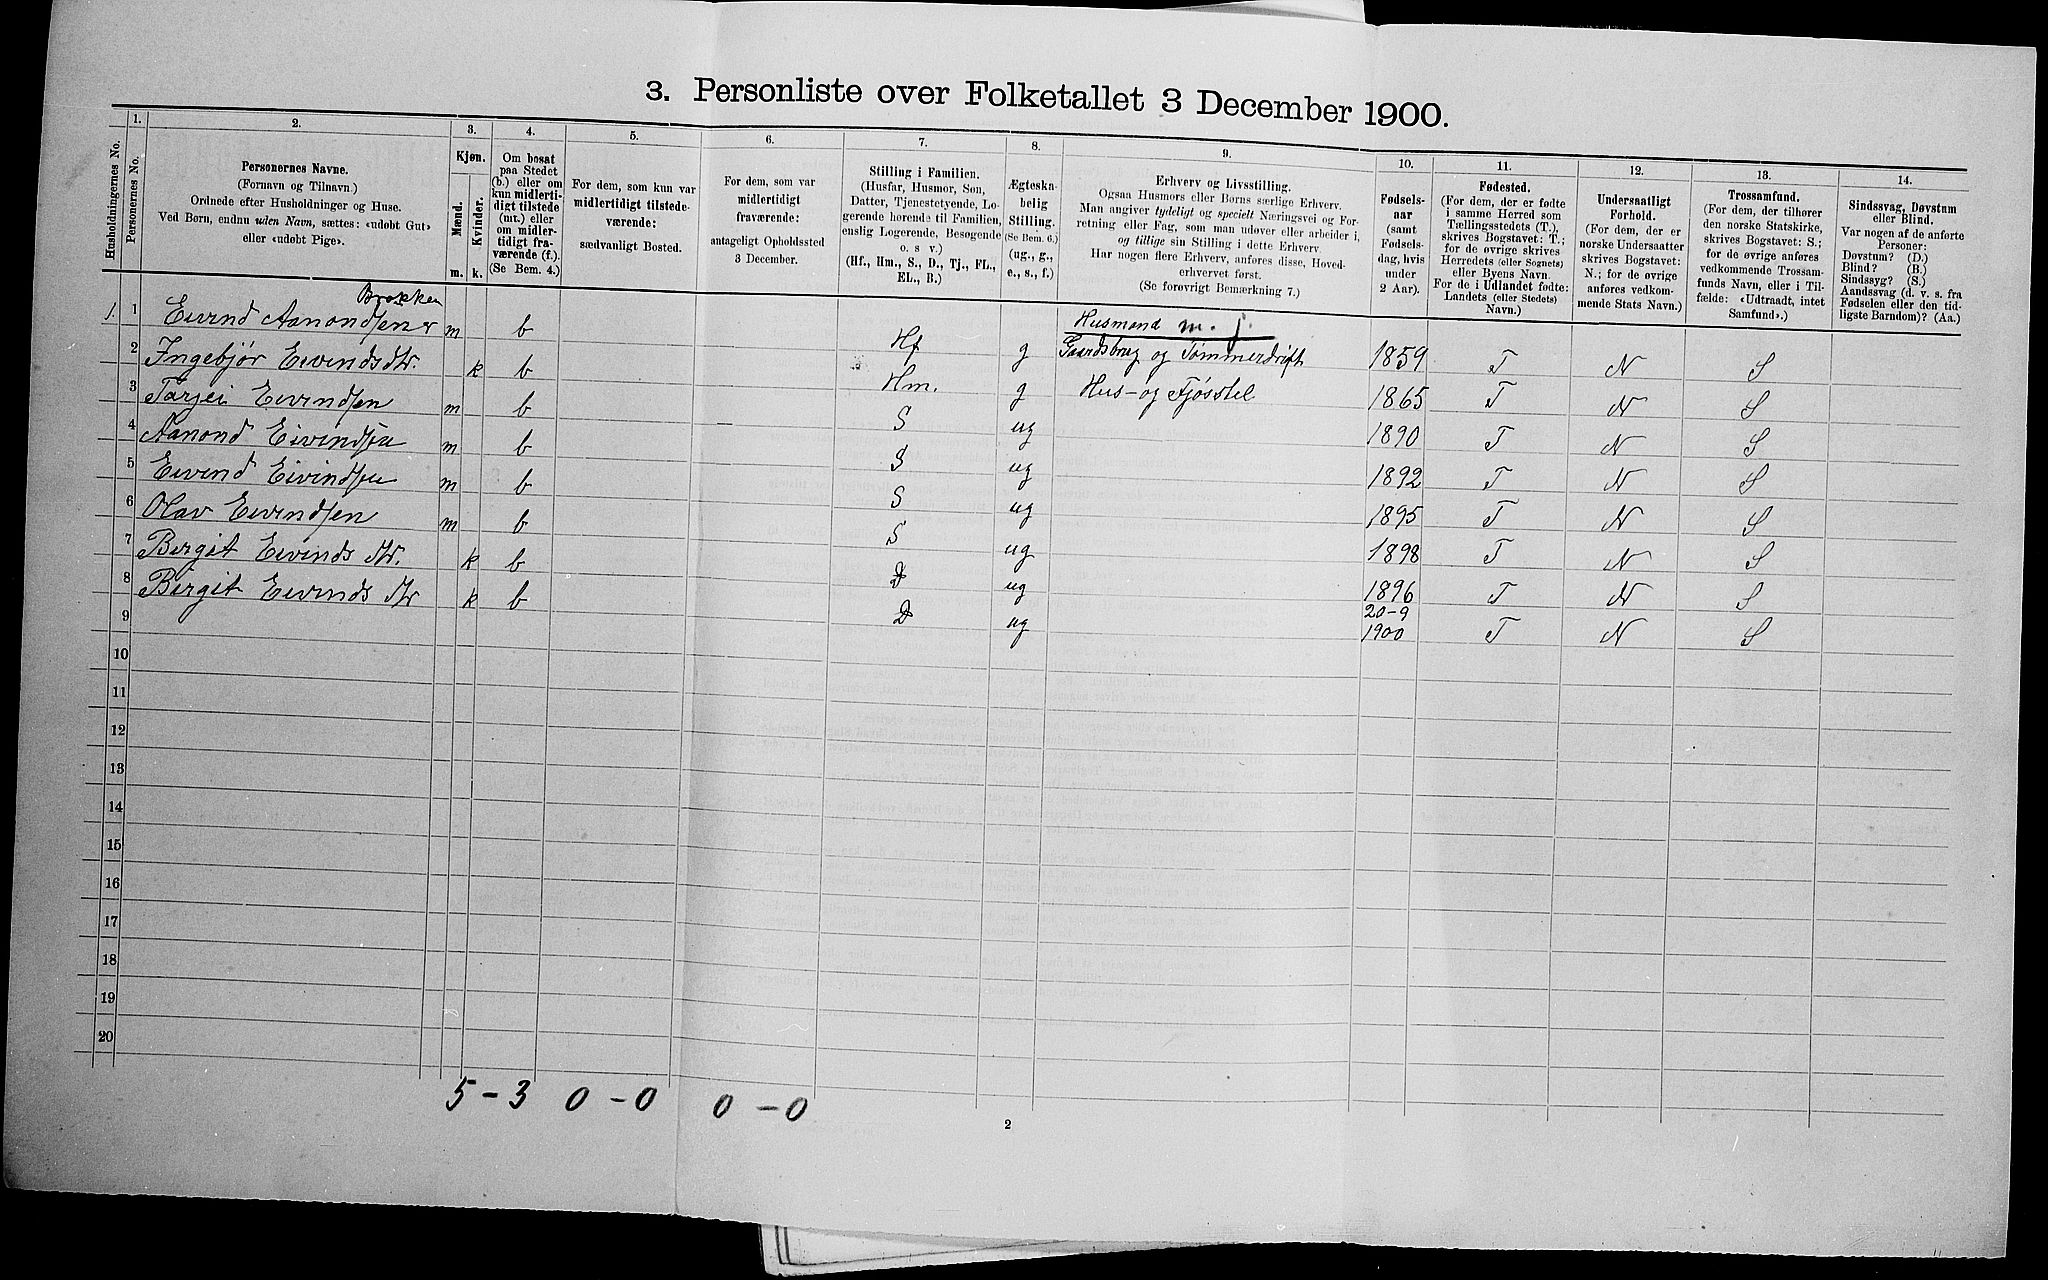 3. Personliste over Folketallet 3 December 1900.
1. 2. 3. 4. 5. 6. 7. 8. 9. 10. 11. 12. 13. 14.
Husholdningernes No.
Personernes No.
Personernes Navne.
(Fornavn og Tilnavn.)
Ordnede efter Husholdninger og Huse.
Ved Børn, endnu uden Navn, sættes: «udøbt Gut»
eller «udøbt Pige».
Kjøn.
Mænd.
Kvinder.
m. k.
Om bosat
paa Stedet
(b.) eller om
kun midlerti-
digt tilstede
(mt.) eller
om midler-
tidigt fra-
værende (f.).
(Se Bem. 4.)
For dem, som kun var
midlertidigt tilstede-
værende:
sædvanligt Bosted.
For dem, som var
midlertidigt
fraværende:
antageligt Opholdssted
3 December.
Stilling i Familien.
(Husfar, Husmor, Søn,
Datter, Tjenestetyende, Lo-
gerende hørende til Familien,
enslig Logerende, Besøgende
o. s v.)
(Hf., Hm., S., D., Tj., FL.,
EL., B.)
Ægteska-
belig
Stilling.
(Se Bem. 6.)
(ug., g.,
e., s., f.)
Erhverv og Livsstilling.
Ogsaa Husmors eller Børns særlige Erhverv.
Man angiver tydeligt og specielt Næringsvei og For-
retning eller Fag, som man udøver eller arbeider i,
og tillige sin Stilling i dette Erhverv.
Har nogen flere Erhverv, anføres disse, Hoved-
erhvervet først.
(Se forøvrigt Bemærkning 7.)
Fødsels-
aar
(samt
Fødsels-
dag, hvis
under
2 Aar).
Fødested.
(For dem, der er fødte
i samme Herred som
Tællingsstedets (T.),
skrives Bogstavet: T.;
for de øvrige skrives
Herredets (eller Sognets)
eller Byens Navn.
For de i Udlandet fødte:
Landets (eller Stedets)
Navn.)
Undersaatligt
Forhold.
(For dem, der er
norske Undersaatter
skrives Bogstavet:
N.; for de øvrige
anføres vedkom-
mende Stats Navn.)
Trossamfund.
(For dem, der tilhører
den norske Statskirke,
skrives Bogstavet: S.;
for de øvrige anføres
vedkommende Trossam-
funds Navn, eller i Til-
fælde: «Udtraadt, intet
Samfund».)
Sindssvag, Døvstum
eller Blind.
Var nogen af de anførte
Personer:
Døvstum? (D.)
Blind? (B.)
Sindssyg? (S.)
Aandssvag (d. v. s. fra
Fødselen eller den tid-
ligste Barndom)? (Aa.)
Brokken
1. 1 Eivind Aanondsen m b Hf g Husmand m. j. Gaardsbrug og Tømmerdrift 1859 T N S
2 Ingebjør Eivindsdtr. k b Hm. g Hus- og Fjøsstel 1865 T N S
3 Tarjei Eivindsen m b S ug 1890 T N S
4 Aanond Eivindsen m b S ug 1892 T N S
5 Eivind Eivindsen m b S ug 1895 T N S
6 Olav Eivindsen m b S ug 1898 T N S
7 Bergit Eivinds dtr. k b D ug 1896 T N S
8 Birgit Eivinds dtr k b D ug 20-9 1900 T N S
9
10
11
12
13
14
15
16
17
18
19
20
5 - 3 0 - 0 0 - 0
2